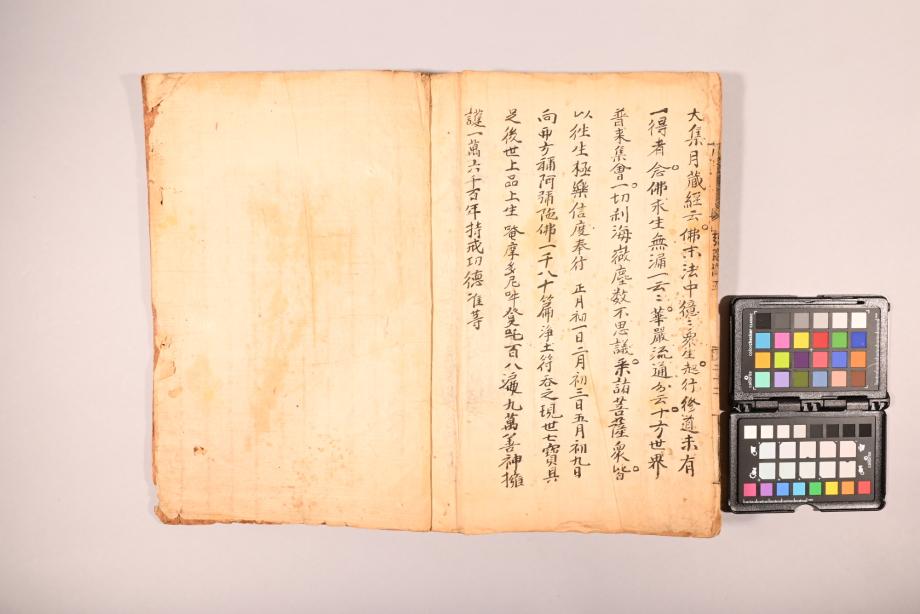 大集月藏經云佛末法中億〻衆生起行修道未有
一得者念佛求生無漏一云〻華嚴流通分云十方世界
普來集會一切刹海微塵数不思議釆諸菩薩衆皆
以徃生極樂信度奉行 正月初一日二月初三日五月初九日
向西方稱阿彌陁佛一千八十篇淨土符呑之現世七寶具
足後世上品上生 唵摩尼吽百八遍九萬善神擁
護一萬六千百年持戒功德准等